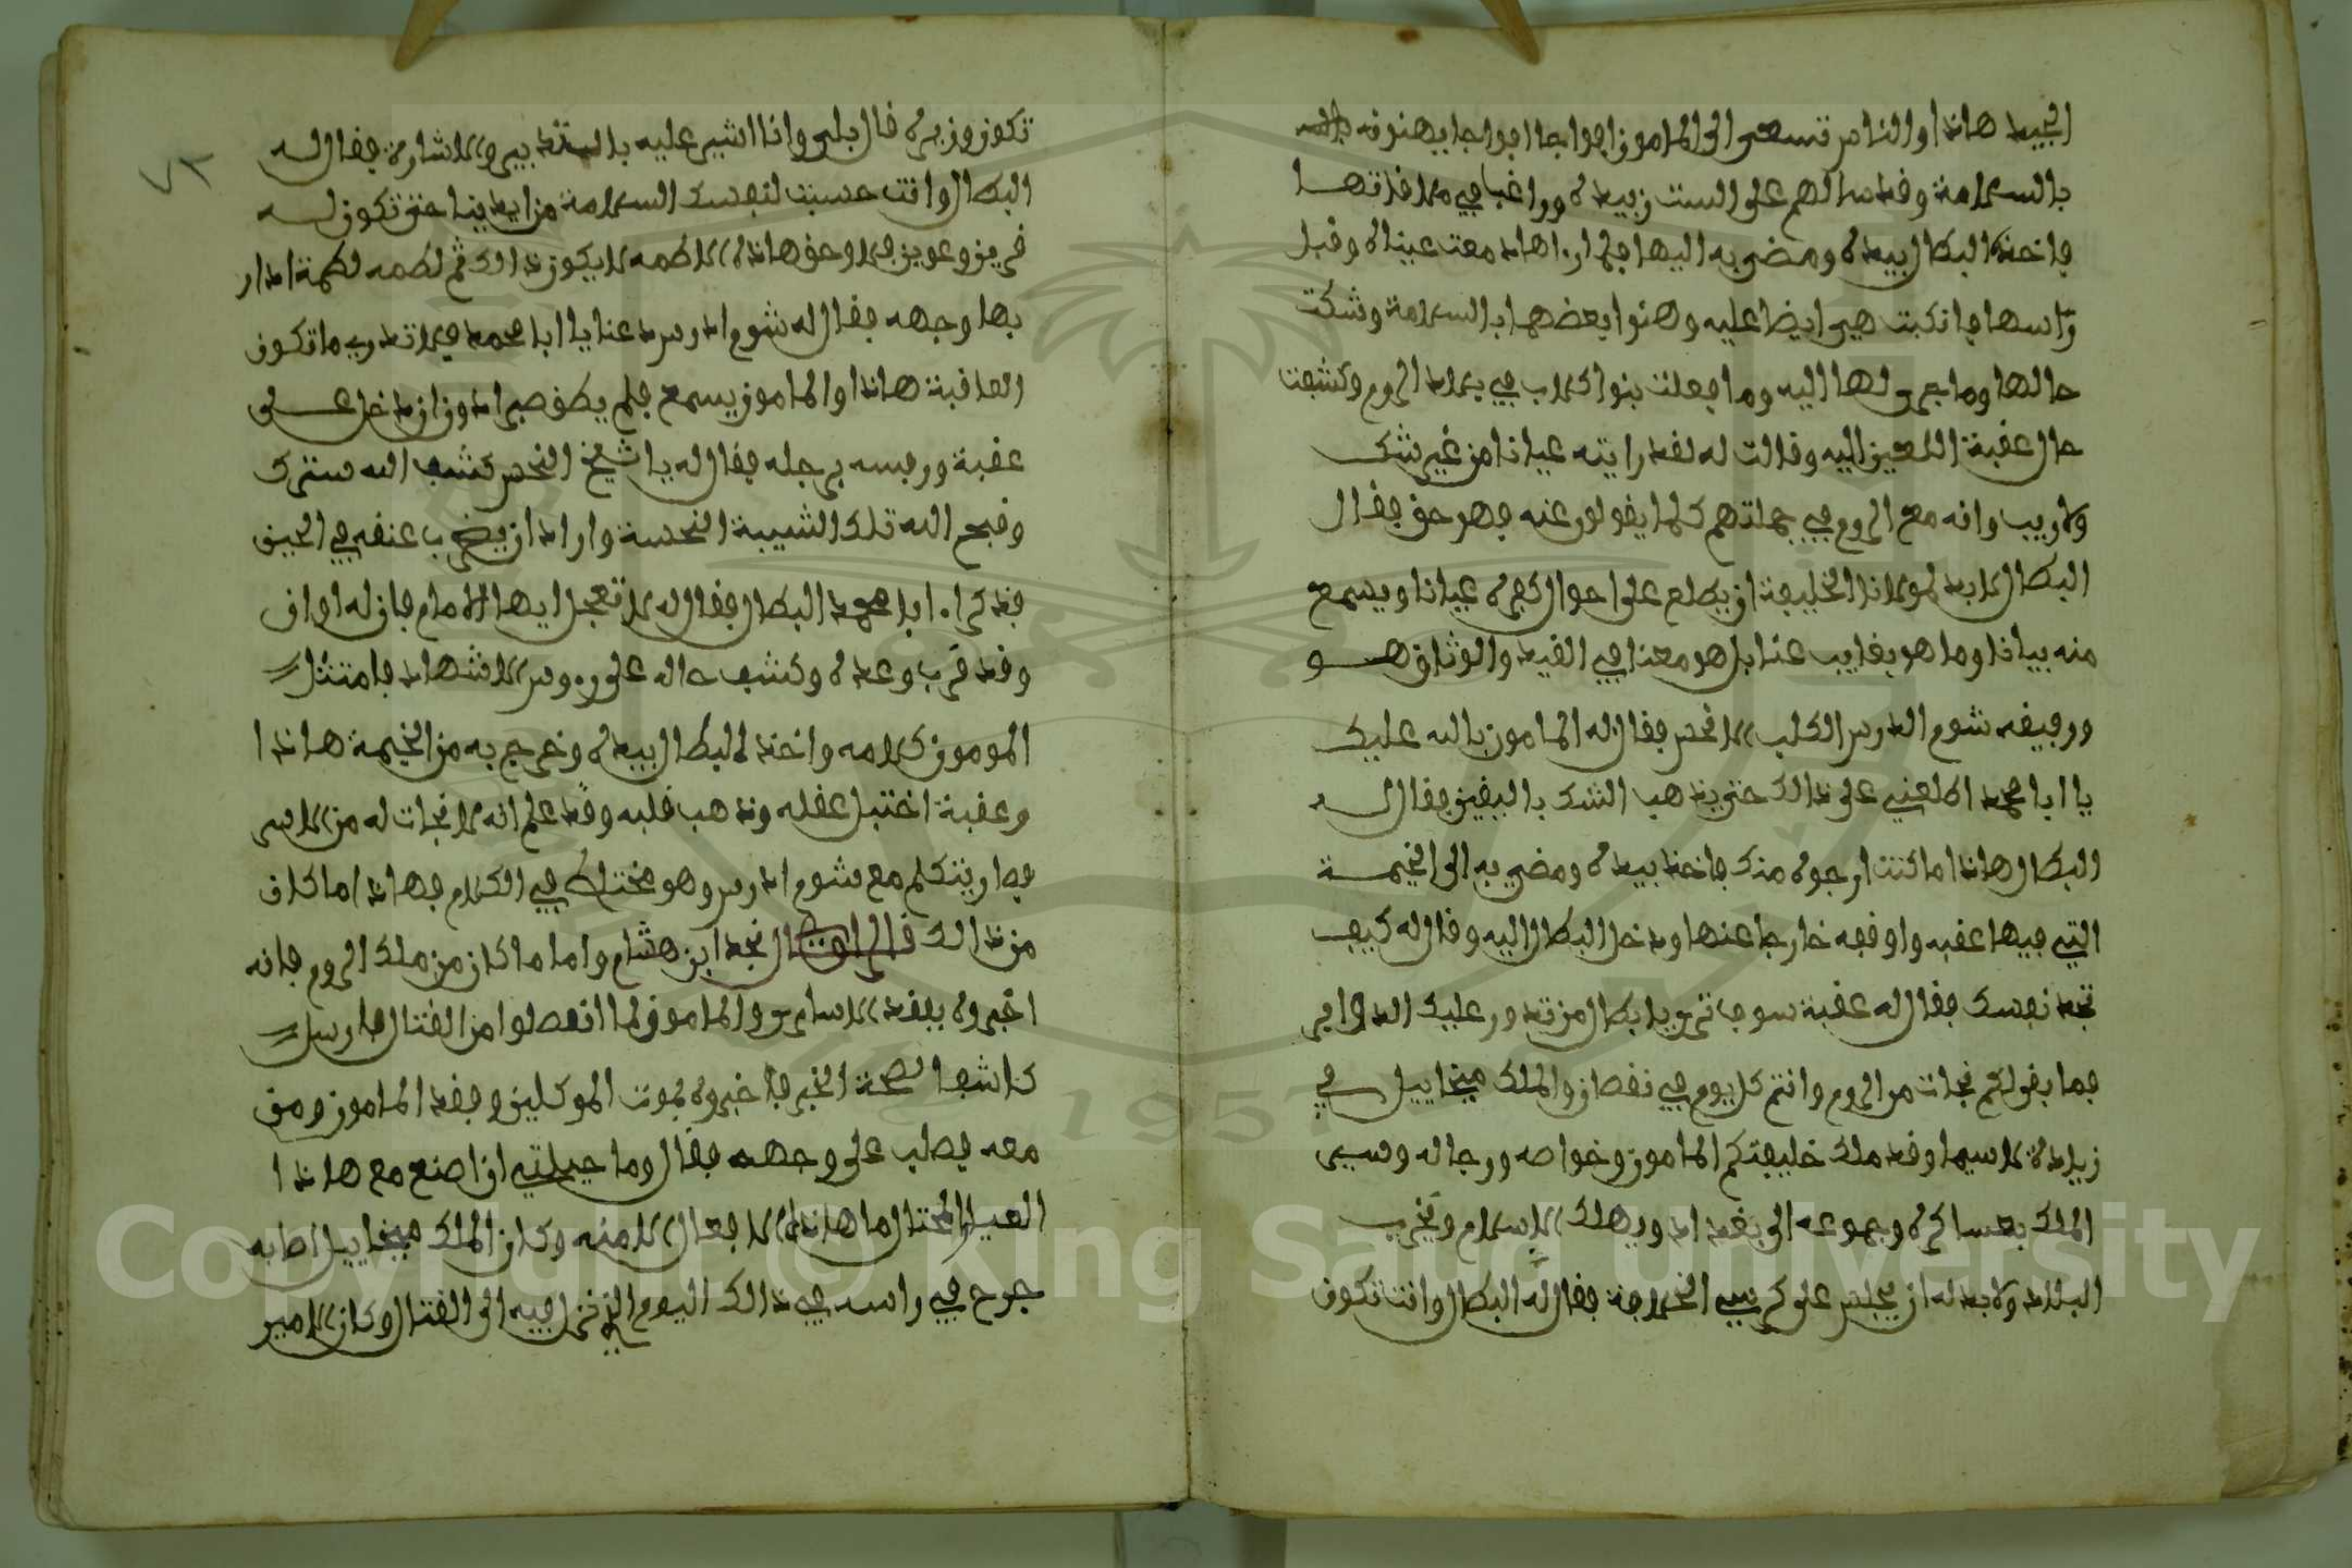 الجيد هاذا والناس تسعى الى المامون افواجا افواجا يهنونه
بالسلامة وقد سالهم على الست زبيدة وراغبا في ملاقاتها
فاخذ البطال بيده ومضى به اليها فلما راها دمعت عيناه وقبل
راسها فانكبت هي ايضا عليه وهنوا بعضهما بالسلامة وشكت
حالها وما جرى لها اليه وما فعلت بنوا كلاب في بلاد الروم وكشفت
حال عقبة اللعين اليه وقالت له لقد رايته عيانا من غير شك
ولا ريب وانه مع الروم في جملتهم كلما يقولون عنه فهو حق فقال
البطال لا بد لمولانا الخليفة ان يطلع على احوال كفره عيانا ويسمع
منه بيانا وما هو بغايب عنا بل هو معنا في القيد والوثاق هو
ورفيقه شوم الدرس الكلب الانحس فقال له المامون بالله عليك
يا ابا محمد اطلعني على ذالك حتى يذهب الشك باليقين فقال له
البطال هاذا ما كنت ارجوه منك فاخذ بيده ومضى به الى الخيمة
التي فيها عقبه واوقفه خارجا عنها ودخل البطال اليه وقال له كيف
تجد نفسك فقال له عقبة سوف ترى يا بطال من تدور عليك الدواير
فما بقى لكم نجات من الروم وانتم كل يوم في نقصان والملك ميخاييل في
زيادة لا سيما وقد ملك خليفتكم المامون وخواصه ورجاله وسيسير
الملك بعساكره وجموعه الى بغداد ويهلك الاسلام ويخرب
البلاد ولا بد له ان يجلس على كرسي الخلافة فقال له البطال وانت تكون
٧٢
تكون وزيره قال بلى وانا اشير عليه بالتدبير والاشارة فقال له
البطال وانت حسبت لنفسك السلامة من ايدينا حتى تكون له
قرين وعوين فلا وحق هاذه اللطمه لا يكون ذالك ثم لطمه لطمة ادار
بها وجهه فقال له شوم ادرس دعنا يا ابا محمد فلا تدري ما تكون
العاقبة هاذا والمامون يسمع فلم يطق صبرا دون ان دخل على
عقبة ورفسه برجله فقال له يا شيخ النحس كشف الله سترك
وقبح الله تلك الشيبة النحسة واراد ان يضرب عنقه في الحين
فذكراه ابا محمد البطال فقال له لا تعجل ايها الامام فان له اوان
وقد قرب وعده وكشف حاله على روس الاشهاد فامتثل
الموموز كلامه واخذ البطال بيده وخرج به من الخيمة هاذا
وعقبة اختبل عقله وذهب قلبه وقد علم انه لا نجات له من الاسر
فصار يتكلم مع شوم ادرس وهو مختلط في الكلام فهاذا ما كان
من ذالك قال الراوي قال نجد ابن هشام واما ما كان من ملك الروم فانه
اخبروه بفقد الاسارى والمامون لما انفصلوا من القتال فارسل
كاشفا لصحة الخبر فاخبروه بموت الموكلين وفقد المامون ومن
معه فصلب على وجهه فقال وما حيلتي ان اصنع مع هاذا
العيار المحتال ما هاذه الافعال الا منه وكان الملك ميخاييل اصابه
جرح في راسه في ذالك اليوم الذي نزل فيه الى القتال وكان الامير
Copyright © King Saud University
1957